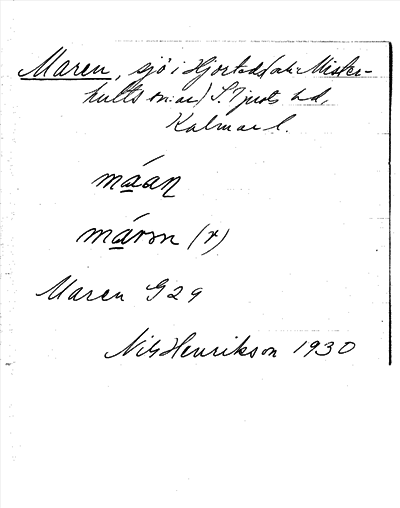 Maren, sjö i Hjorted (ök: Mister-
hults sn:ar) S. Tjusts hd,
Kalmar l.
máaŋ
márɷn (r)
Maren G29
Nils Henrikson 1930